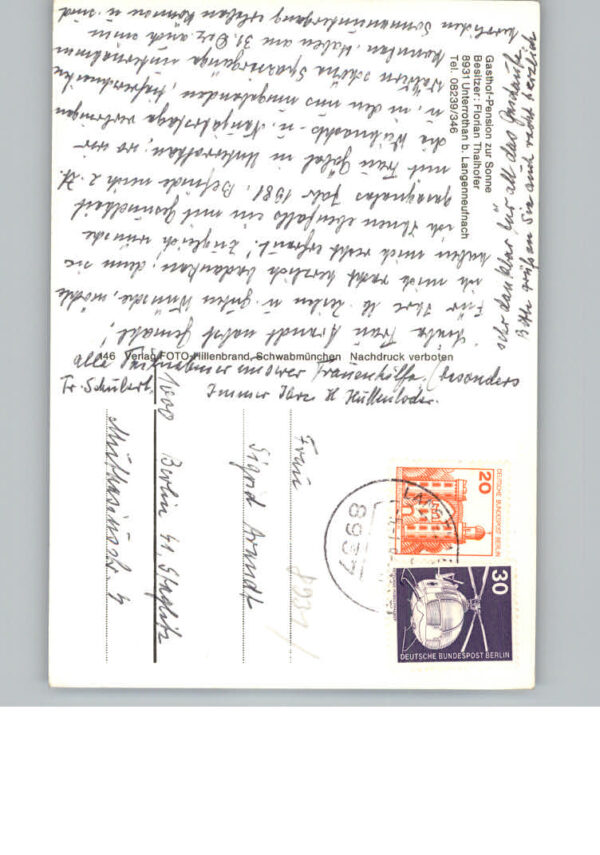 Gasthof-Pension zur Sonne
Besitzer: Florian Thalhofer
8931 Unterrothan b. Langenneufnach
Tel. 08239/346
Liebe Frau Arandt nebst Gemahl!
Für Ihre lb. Zeilen u. guten Wünsche, möchte
ich mich recht herzlich bedanken, denn sie
haben mich recht erfreut. Zugleich wünsche
ich Ihnen ebenfalls ein mit Gesundheit
gesegnetes Jahr 1981. Befinde mich z. Zt.
mit Frau Göbel in Unterrothan, wo wir
die Weihnachts- u. Neujahrstage verbringen
u. in den uns umgebenden, tiefverschneiten
Wäldern schöne Spaziergänge unternehmen
konnten. Haben am 31. Dez. auch einen
herrlichen Sonnenuntergang erleben können u. sind
sehr dankbar für all das
Bitte grüßen Sie auch recht herzlich
alle Teilnehmer unserer Frauenhilfe, besonders
Fr. Schubert. Immer Ihre H.
146 Verlag FOTO-Hillenbrand, Schwabmünchen Nachdruck verboten
Frau
Sigrid Arandt
1000 Berlin 41 Steglitz
8931
8937
20
DEUTSCHE BUNDESPOST BERLIN
30
DEUTSCHE BUNDESPOST BERLIN